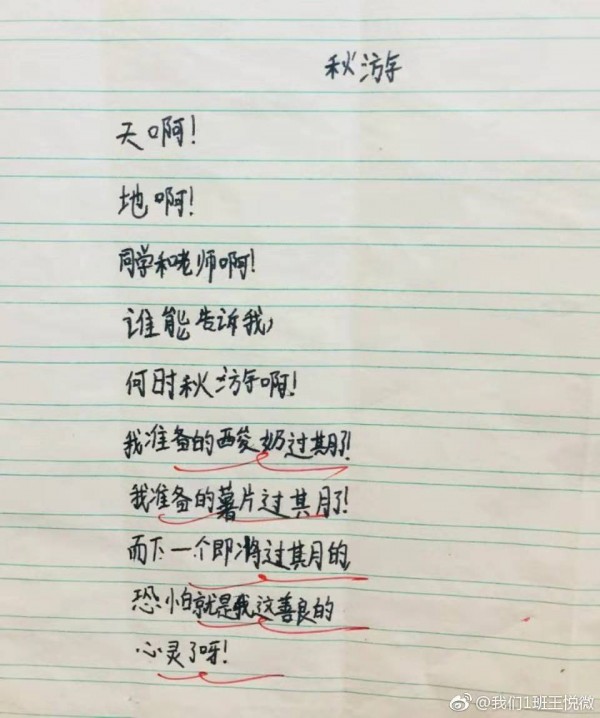 秋游
天啊!
地啊!
同学和老师啊!
谁能告诉我,
何时秋游啊!
我准备的酸奶过期了!
我准备的薯片过期了!
而下一个即将过期的
恐怕就是我这善良的
心灵了呀!
@我们1班王悦微